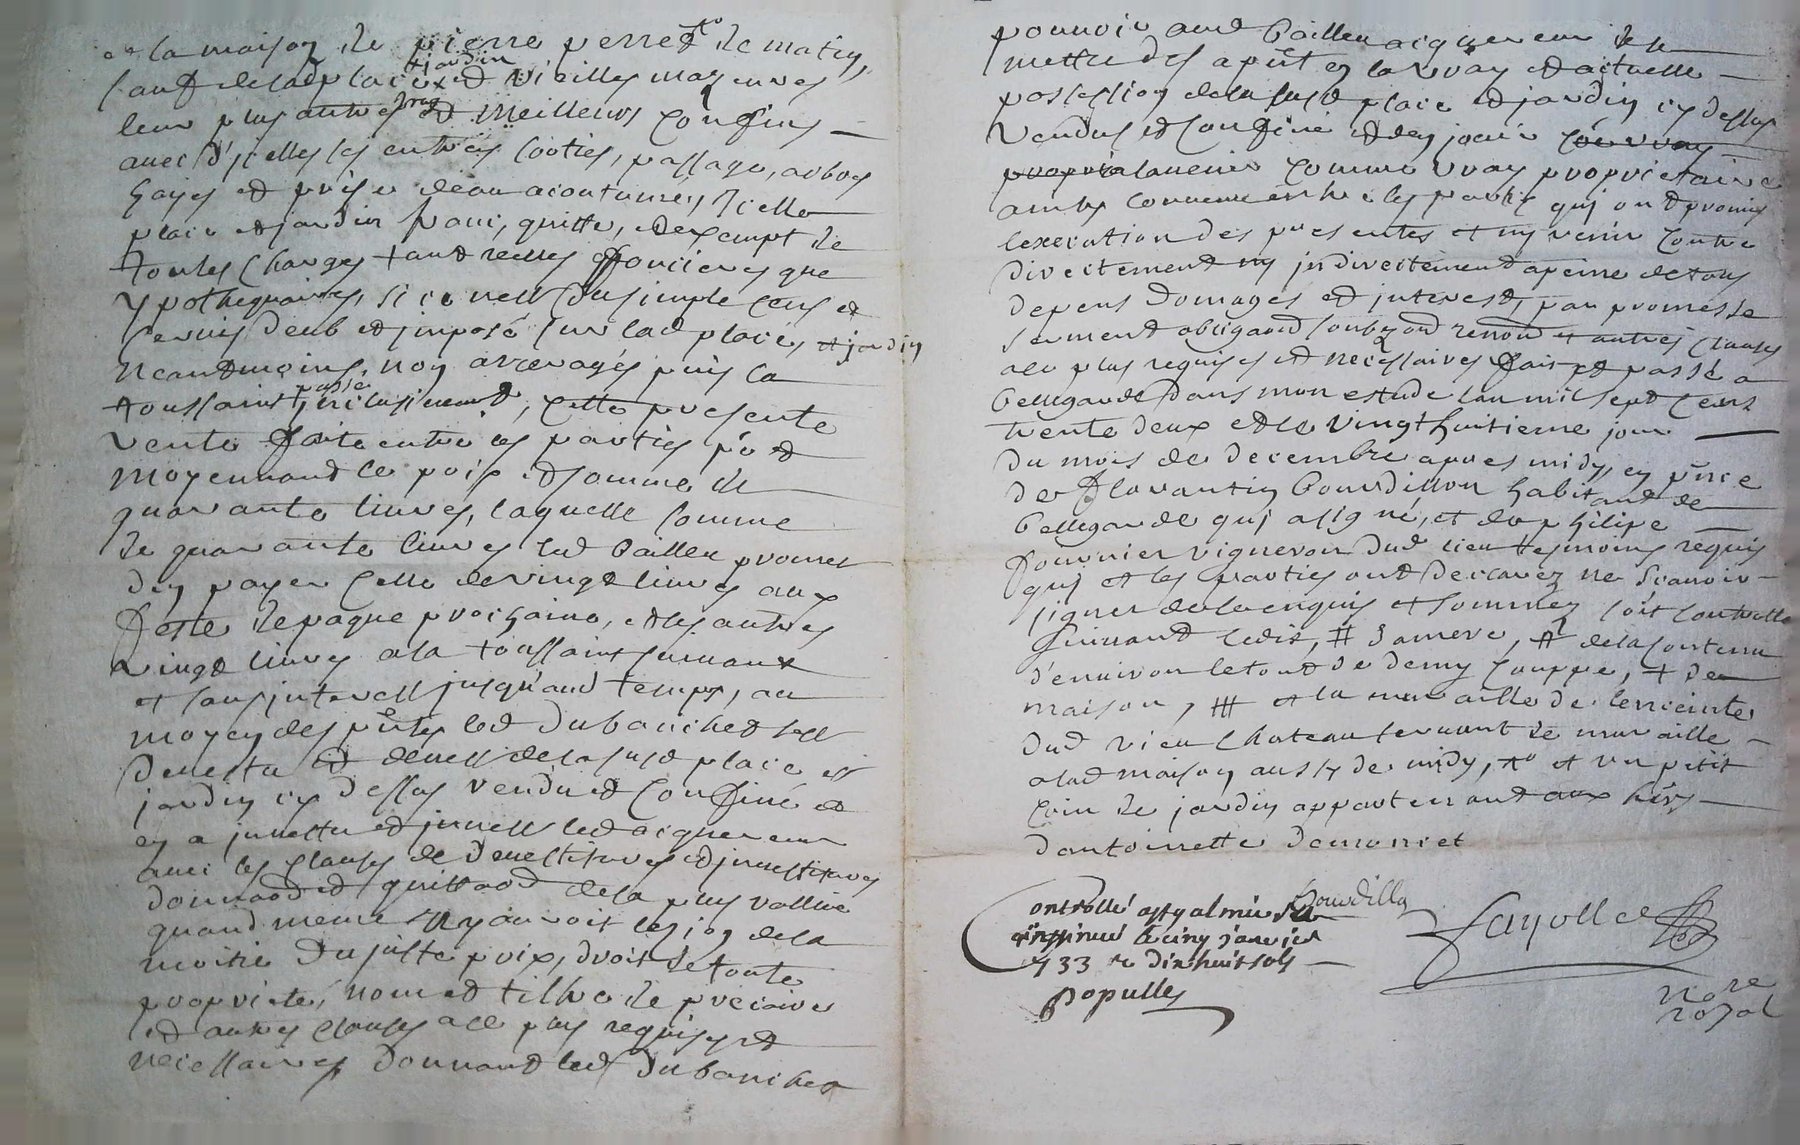 et la maison de pierre perret #° de matin,
sauf de lad place & jardin et vieilles mazures
leur plus autres vrais et meilleurs confins —
avec d'icelles les entrées sorties, passage, arbres
hayes et prise deau acoutumés, icelle
place et jardin franc, quitte, et exempt de
toutes charges tant reelles foncieres que
ypothequaires, si ce nest du simple cens et
servis deub et imposé sur lad place, et jardin
neantmoins, non arreragés puis la
toussaint passé inclusivement, cette presente
vente faite entre les parties pnt
moyennant le prix et somme de
quarante livres, laquelle somme
de quarante livres led Baillu promet
den payer celle de vingt livres aux
feste de paque prochaine, et les autres
vingt livres a la toussaint suivant
et sans interest jusqu'aud temps, au
moyen des pntes led Dubanchet sest
Devestu et devest de la susd place et
jardin cy dessus vendu et confiné et
en a investu et investi led acquereur
avec les clauses de Devestitures et investitures
donnant et quittant de la plus vallue
quand meme il y auroit lezion de la
moitié du juste prix, droit de toute
proprieté, nom et tiltre de precaire
et autres clauses a ce plus requises et
necessaires donnant led Dubanchet
pouvoir aud Baillu acquereur de se
mettre des a pnt en la vray et actuelle —
possession de la susd place et jardin cy dessus
vendus et confiné et den jouir comme vray
propriolavenir comme vray proprietaire
ainsy convenu entre les parties qui ont promis
lexecution des presentes et ny venir contre
directement ny indirectement a peine de tous
depens domages et interest, par promesse
serment obligaon soubzon renon et autres clauses
a ce plus requises et necessaires fait et passé a
Bellegarde dans mon estude lan mil sept cens
trente deux et le vingt huitieme jour —
du mois de decembre apres midy, en pnce
de florantin Bourdillon habitant de
Bellegarde qui a signé, et de philipe —
fournier vigneron dud lieu tesmoins requis
qui et les parties ont declarez ne scavoir —
signer de ce enquis et sommez soit controllé
suivant ledit, # damere, # de la contenue
d'environ le tout de demy couppe, + de
maison, ### et la muraille de lenceinte
dud vieu chateau servant de muraille —
a lad maison aussy de midy, #° et un petit
coin de jardin appartenant aux hers —
dantoinette damoncet
Controllé
insinué le cinq janvier
733 r dix huit sols —
Bourdillon
fayolle
Populle
Nore
royal